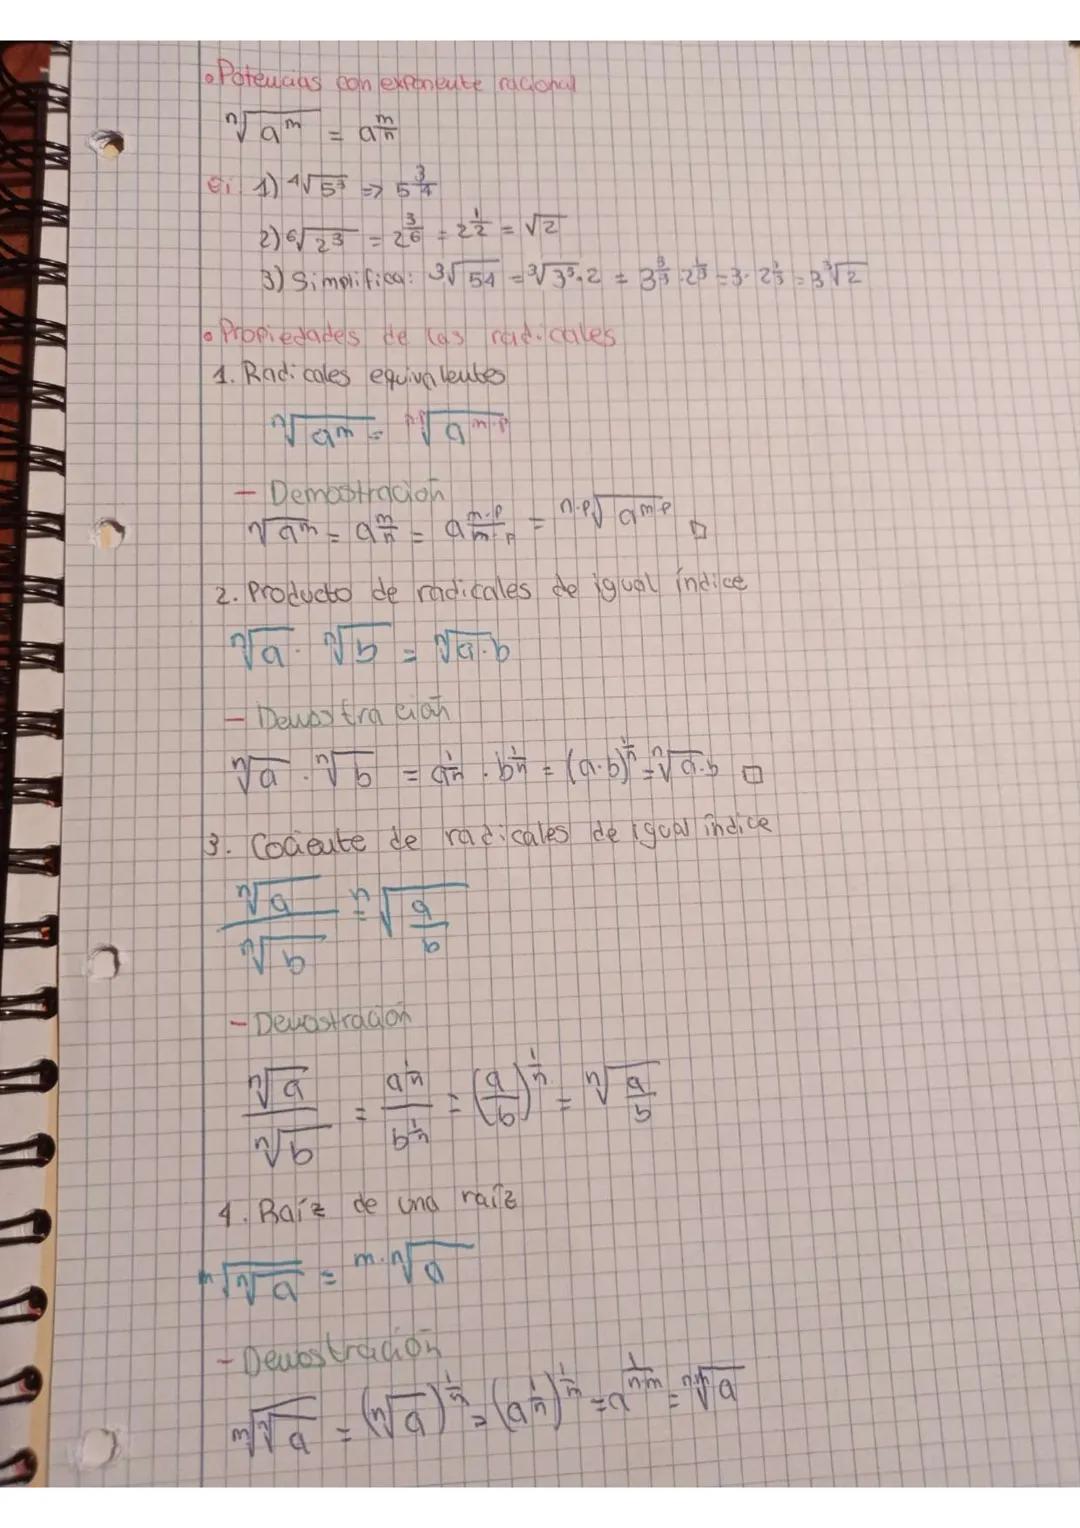 • Potencias con exponente racional
ⁿ√a^m = a^(m/n)
Ej 1) ⁴√5³ => 5^(3/4)
2) ⁶√2³ = 2^(3/6) = 2^(1/2) = √2
3) Simplifica: ³√54 = ³√3³·2 = 3^(3/3)·2^(1/3) = 3·2^(1/3) = 3³√2
• Propiedades de las radicales
1. Radicales equivalentes
ⁿ√a^m = ^(n·p)√a^(m·p)
- Demostración
ⁿ√a^m = a^(m/n) = a^(m·p/m·p) = ^(n·p)√a^(m·p) □
2. Producto de radicales de igual índice
ⁿ√a · ⁿ√b = ⁿ√a·b
- Demostración
ⁿ√a · ⁿ√b = a^(1/n) · b^(1/n) = (a·b)^(1/n) = ⁿ√a·b □
3. Cociente de radicales de igual índice
ⁿ√a / ⁿ√b = ⁿ√(a/b)
- Demostración
ⁿ√a / ⁿ√b = a^(1/n) / b^(1/n) = (a/b)^(1/n) = ⁿ√(a/b)
4. Raíz de una raíz
^m√ⁿ√a = ^(m·n)√a
- Demostración
^m√ⁿ√a = (ⁿ√a)^(1/m) = (a^(1/n))^(1/m) = a^(1/n·m) = ^(n·m)√a